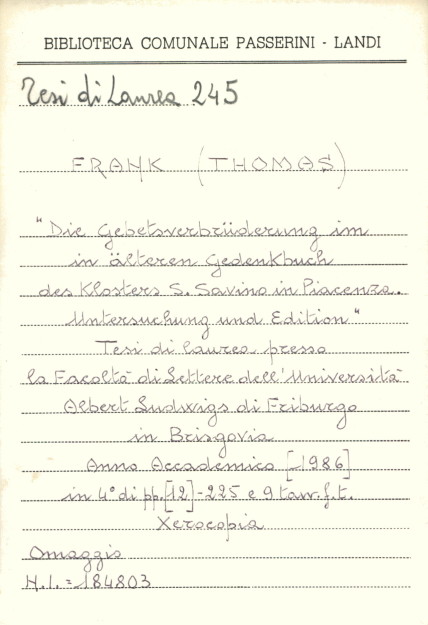 BIBLIOTECA COMUNALE PASSERINI - LANDI
Tesi di Laurea 245
FRANK (THOMAS)
"Die Gebetsverbrüderung im
in älteren Gedenkbuch
des Klosters S. Savino in Piacenza.
Untersuchung und Edition"
Tesi di laurea presso
la Facoltà di Lettere dell'Università
Albert Ludwigs di Friburgo
in Brisgovia
Anno Accademico [1986]
in 4° di pp.[12]-225 e 9 tavv. f.t.
Xerocopia
Omaggio
N.I. = 184803